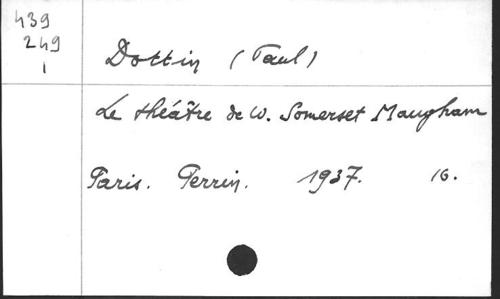 439
249
1
Dottin (Paul)
Le théâtre de W. Somerset Maugham
Paris. Perrin. 1937. 16.